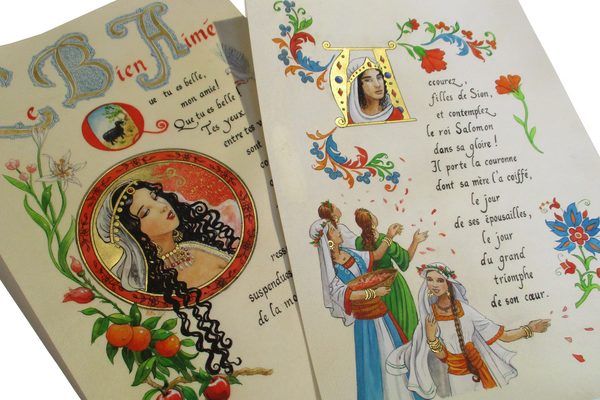 Le Bien Aimé
Que tu es belle,
mon amie!
Que tu es belle
Tes yeux
entre tes v
sont
ress
suspendues
de la mo
Accourez,
filles de Sion,
et contemplez
le roi Salomon
dans sa gloire !
Il porte la couronne
dont sa mère l'a coiffé,
le jour
de ses épousailles,
le jour
du grand
triomphe
de son cœur.